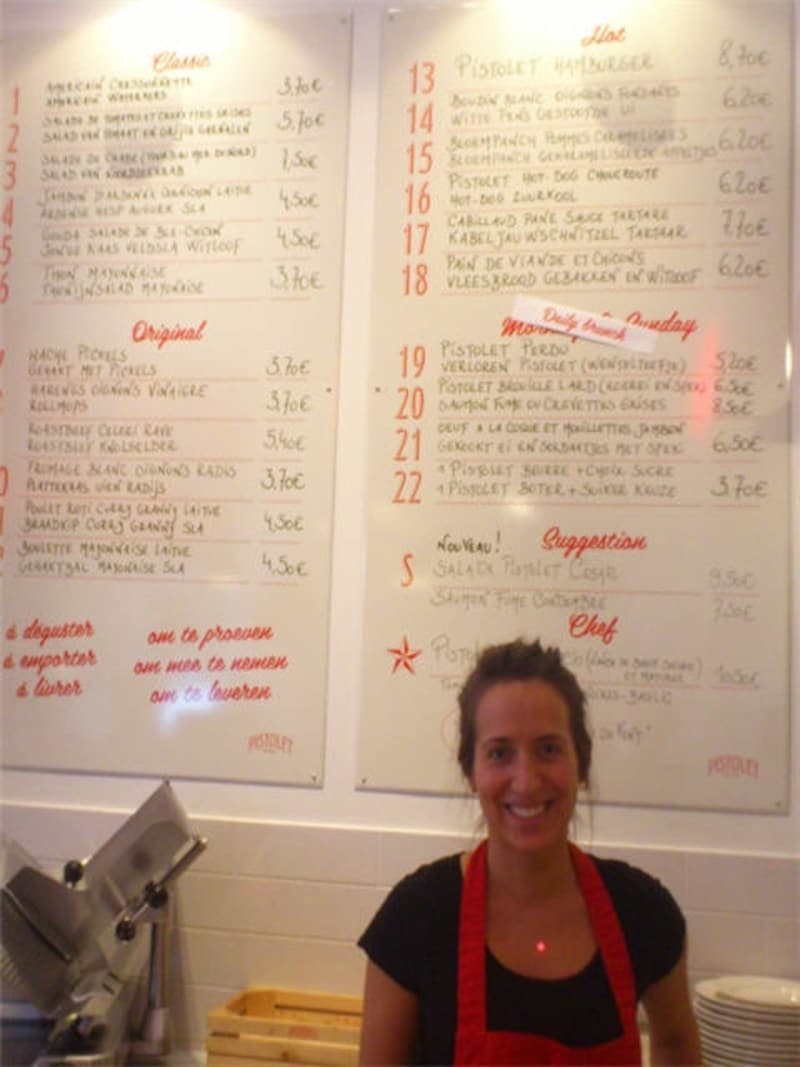 Classic
1
AMERICAIN CRESSONNETTE 3,70€
AMERICAIN WATERKERS
2
SALADE DE TOMATES ET CREVETTES GRISES 5,70€
SALAD VAN TOMAAT EN GRIJZE GARNALEN
3
SALADE DE CRABE (TOURTEAU MER DU NORD) 7,50€
SALAD VAN NOORDZEEKRAB
4
JAMBON D'ARDENNE CORNICHON LAITUE 4,50€
ARDENSE HESP AUGURK SLA
5
GOUDA SALADE DE BLE CHICON 4,50€
JONGE KAAS VELDSLA WITLOOF
6
THON MAYONNAISE 3,70€
THONIJNSALAD MAYONAISE
Original
HACHE PICKELS 3,70€
GEHAKT MET PICKELS
HARENGS OIGNONS VINAIGRE 3,70€
ROLLMOPS
ROASTBEEF CELERI RAVE 5,40€
ROASTBEEF KNOLSELDER
FROMAGE BLANC OIGNONS RADIS 3,70€
PLATTEKAAS UIEN RADIJS
POULET ROTI CURRY GRANNY LAITUE 4,50€
BRAADKIP CURRY GRANNY SLA
BOULETTE MAYONNAISE LAITUE 4,50€
GEHAKTBAL MAYONAISE SLA
à déguster om te proeven
à emporter om mee te nemen
à livrer om te leveren
PISTOLET
Hot
13 PISTOLET HAMBURGER 8,70€
14 BOUDIN BLANC OIGNONS FONDANTS 6,20€
WITTE PENS GESTOOFDE UI
15 BLOEMPANCH POMMES CARAMELISEES 6,20€
BLOEMPANCH GEKARAMELISEERDE APPELTJES
16 PISTOLET HOT-DOG CHOUCROUTE 6,20€
HOT-DOG ZUURKOOL
17 CABILLAUD PANE SAUCE TARTARE 7,70€
KABELJAUWSCHNITZEL TARTAAR
18 PAIN DE VIANDE ET CHICONS 6,20€
VLEESBROOD GEBAKKEN EN WITLOOF
Daily brunch
Sunday
19 PISTOLET PERDU
VERLOREN PISTOLET (WENTELTEEFJE) 5,20€
20 PISTOLET BROUILLE LARD (ROEREI EN SPEK) 6,50€
SAUMON FUME OU CREVETTES GRISES 8,50€
21 OEUF A LA COQUE ET MOUILLETTES JAMBON
GEKOOKT EI EN SOLDAATJES MET SPEK 6,50€
22 1 PISTOLET BEURRE + CHOIX SUCRE
1 PISTOLET BOTER + SUIKER KEUZE 3,70€
NOUVEAU! Suggestion
S SALADE PISTOLET CESAR 9,50€
SAUMON FUME 7,50€
Chef
10,50€
PISTOLET